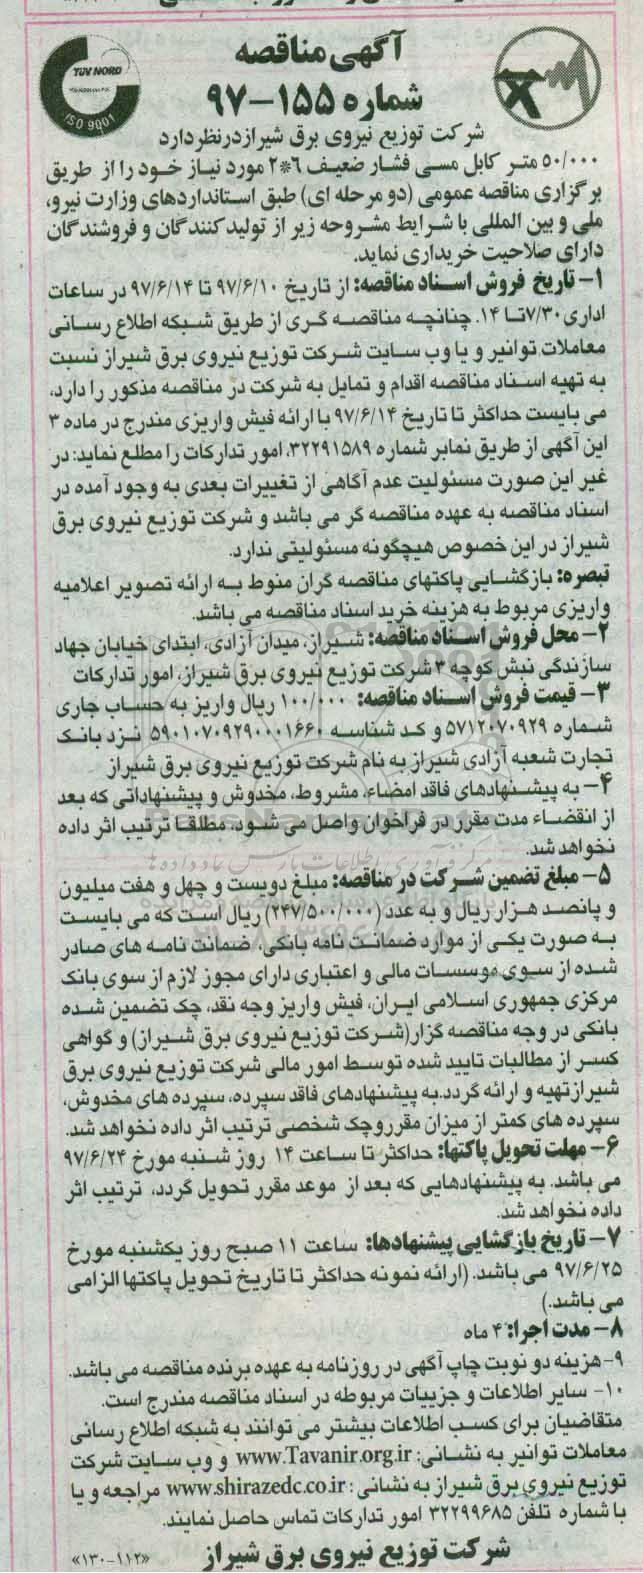 آگهی مناقصه
شماره ۱۵۵-۹۷
TÜV NORD
ISO 9001
شرکت توزیع نیروی برق شیراز درنظر دارد
۵۰/۰۰۰ متر کابل مسی فشار ضعیف ۶*۲ مورد نیاز خود را از طریق
برگزاری مناقصه عمومی (دو مرحله ای) طبق استانداردهای وزارت نیرو،
ملی و بین المللی با شرایط مشروحه زیر از تولیدکنندگان و فروشندگان
دارای صلاحیت خریداری نماید.
۱- تاریخ فروش اسناد مناقصه: از تاریخ ۹۷/۶/۱۰ تا ۹۷/۶/۱۴ در ساعات
اداری ۷/۳۰ تا ۱۴. چنانچه مناقصه گری از طریق شبکه اطلاع رسانی
معاملات توانیر و یا وب سایت شرکت توزیع نیروی برق شیراز نسبت
به تهیه اسناد مناقصه اقدام و تمایل به شرکت در مناقصه مذکور را دارد،
می بایست حداکثر تا تاریخ ۹۷/۶/۱۴ با ارائه فیش واریزی مندرج در ماده ۳
این آگهی از طریق نمابر شماره ۳۲۲۹۱۵۸۹، امور تدارکات را مطلع نماید: در
غیر این صورت مسئولیت عدم آگاهی از تغییرات بعدی به وجود آمده در
اسناد مناقصه به عهده مناقصه گر می باشد و شرکت توزیع نیروی برق
شیراز در این خصوص هیچگونه مسئولیتی ندارد.
تبصره: بازگشایی پاکتهای مناقصه گران منوط به ارائه تصویر اعلامیه
واریزی مربوط به هزینه خرید اسناد مناقصه می باشد.
۲- محل فروش اسناد مناقصه: شیراز، میدان آزادی، ابتدای خیابان جهاد
سازندگی نبش کوچه ۳ شرکت توزیع نیروی برق شیراز، امور تدارکات
۳- قیمت فروش اسناد مناقصه: ۱۰۰/۰۰۰ ریال واریز به حساب جاری
شماره ۵۷۱۲۰۷۰۹۲۹ و کد شناسه ۵۹۰۱۰۷۰۹۲۹۰۰۰۱۶۶۰ نزد بانک
تجارت شعبه آزادی شیراز به نام شرکت توزیع نیروی برق شیراز
۴- به پیشنهادهای فاقد امضاء، مشروط، مخدوش و پیشنهاداتی که بعد
از انقضاء مدت مقرر در فراخوان واصل می شود، مطلقا ترتیب اثر داده
نخواهد شد.
۵- مبلغ تضمین شرکت در مناقصه: مبلغ دویست و چهل و هفت میلیون
و پانصد هزار ریال و به عدد (۲۴۷/۵۰۰/۰۰۰) ریال است که می بایست
به صورت یکی از موارد ضمانت نامه بانکی، ضمانت نامه های صادر
شده از سوی موسسات مالی و اعتباری دارای مجوز لازم از سوی بانک
مرکزی جمهوری اسلامی ایران، فیش واریز وجه نقد، چک تضمین شده
بانکی در وجه مناقصه گزار (شرکت توزیع نیروی برق شیراز) و گواهی
کسر از مطالبات تایید شده توسط امور مالی شرکت توزیع نیروی برق
شیراز تهیه و ارائه گردد. به پیشنهادهای فاقد سپرده، سپرده های مخدوش،
سپرده های کمتر از میزان مقرر و چک شخصی ترتیب اثر داده نخواهد شد.
۶- مهلت تحویل پاکتها: حداکثر تا ساعت ۱۴ روز شنبه مورخ ۹۷/۶/۲۴
می باشد. به پیشنهادهایی که بعد از موعد مقرر تحویل گردد، ترتیب اثر
داده نخواهد شد.
۷- تاریخ بازگشایی پیشنهادها: ساعت ۱۱ صبح روز یکشنبه مورخ
۹۷/۶/۲۵ می باشد. (ارائه نمونه حداکثر تا تاریخ تحویل پاکتها الزامی
می باشد.)
۸- مدت اجرا: ۴ ماه
۹- هزینه دو نوبت چاپ آگهی در روزنامه به عهده برنده مناقصه می باشد.
۱۰- سایر اطلاعات و جزییات مربوطه در اسناد مناقصه مندرج است.
متقاضیان برای کسب اطلاعات بیشتر می توانند به شبکه اطلاع رسانی
معاملات توانیر به نشانی: www.Tavanir.org.ir و وب سایت شرکت
توزیع نیروی برق شیراز به نشانی: www.shirazedc.co.ir مراجعه و یا
با شماره تلفن ۳۲۲۹۹۶۸۵ امور تدارکات تماس حاصل نمایند.
شرکت توزیع نیروی برق شیراز
«۱۳۰-۱۱۲»